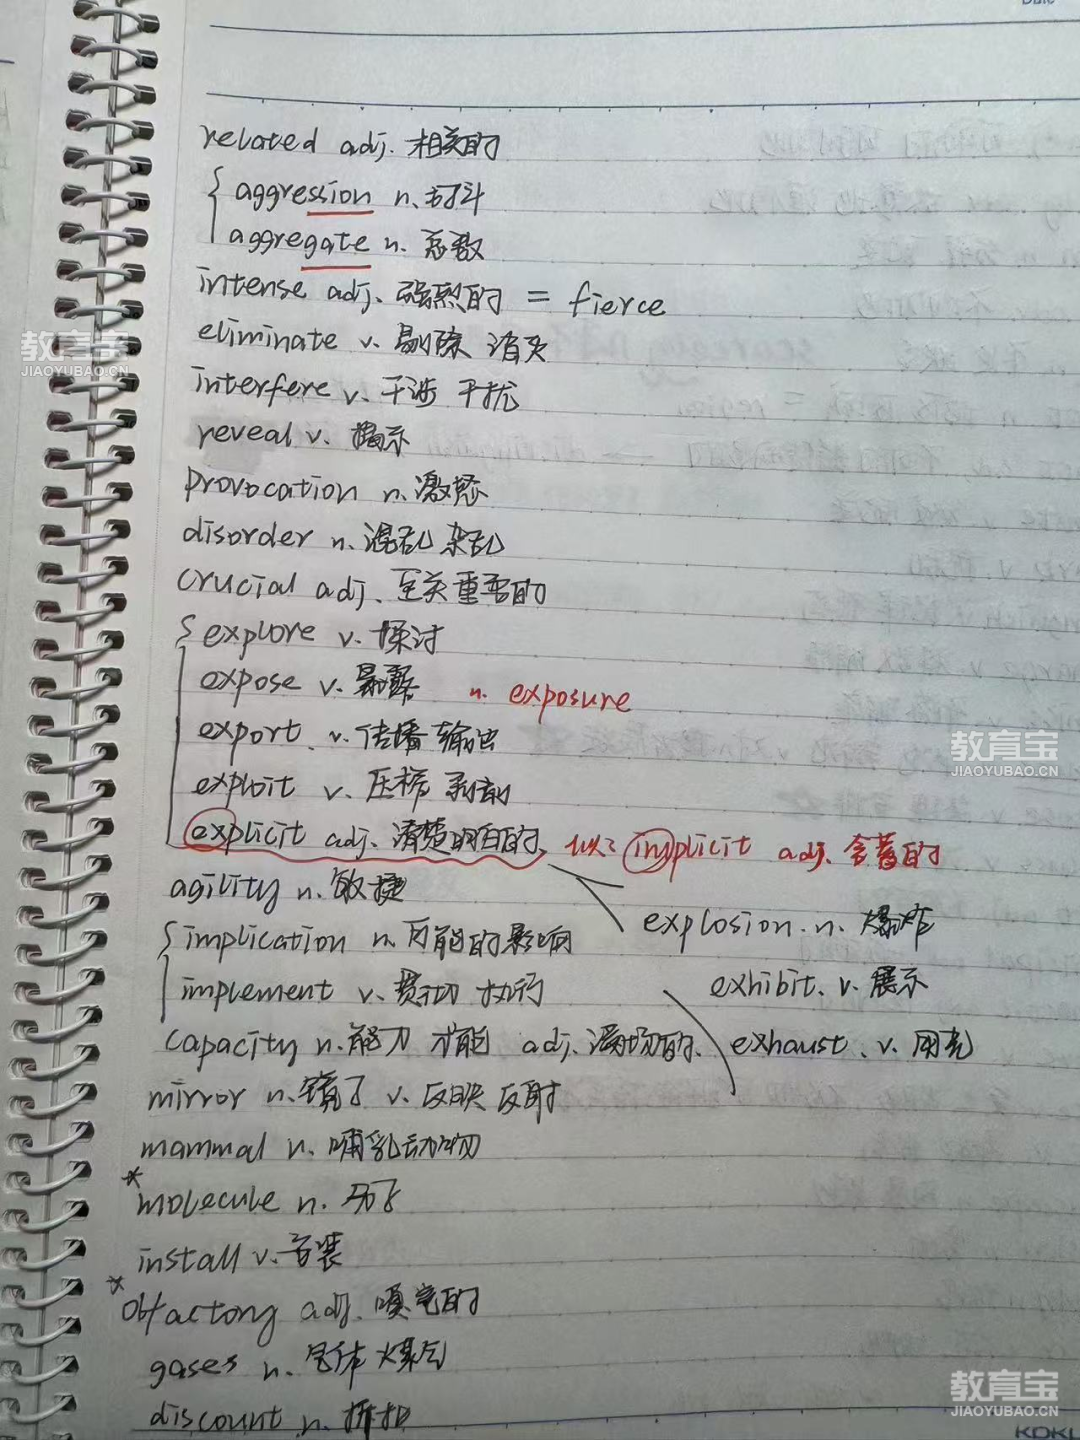 Date
related adj. 相关的
aggression n. 打斗
aggregate n. 总数
intense adj. 强烈的 = fierce
eliminate v. 剔除 消失
interfere v. 干涉 干扰
reveal v. 揭示
provocation n. 激怒
disorder n. 混乱 杂乱
crucial adj. 至关重要的
explore v. 探讨
expose v. 暴露 n. exposure
export v. 传播 输出
exploit v. 压榨 剥削
explicit adj. 清楚明白的 implicit adj. 含蓄的
agility n. 敏捷
explosion n. 爆炸
implication n. 可能的影响
exhibit v. 展示
implement v. 执行
capacity n. 能力 才能 adj. 满场的
exhaust v. 用光
mirror n. 镜子 v. 反映 反射
mammal n. 哺乳动物
*molecule n. 分子
install v. 安装
*olfactory adj. 嗅觉的
gases n. 气体 煤气
discount n. 折扣
KOKU
教育宝
JIAOYUBAO.CN
教育宝
JIAOYUBAO.CN
教育宝
JIAOYUBAO.CN